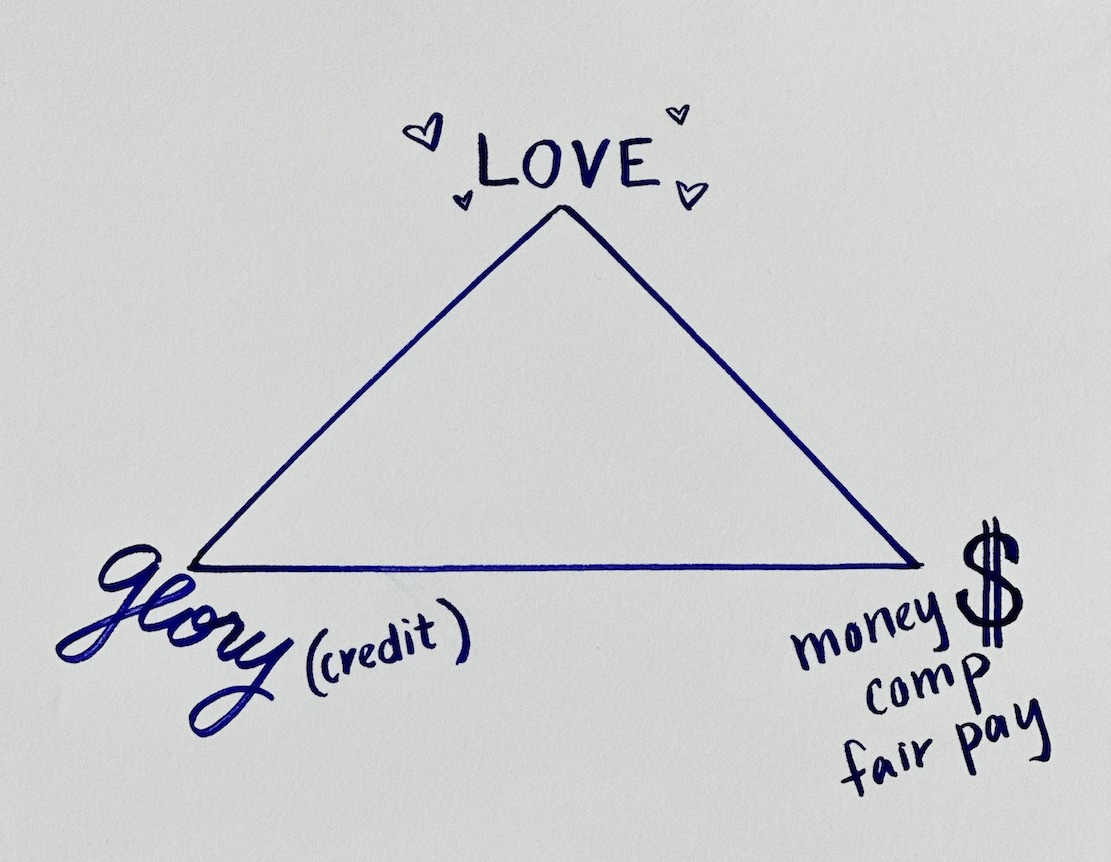 LOVE
glory (credit)
$
money
comp
fair pay